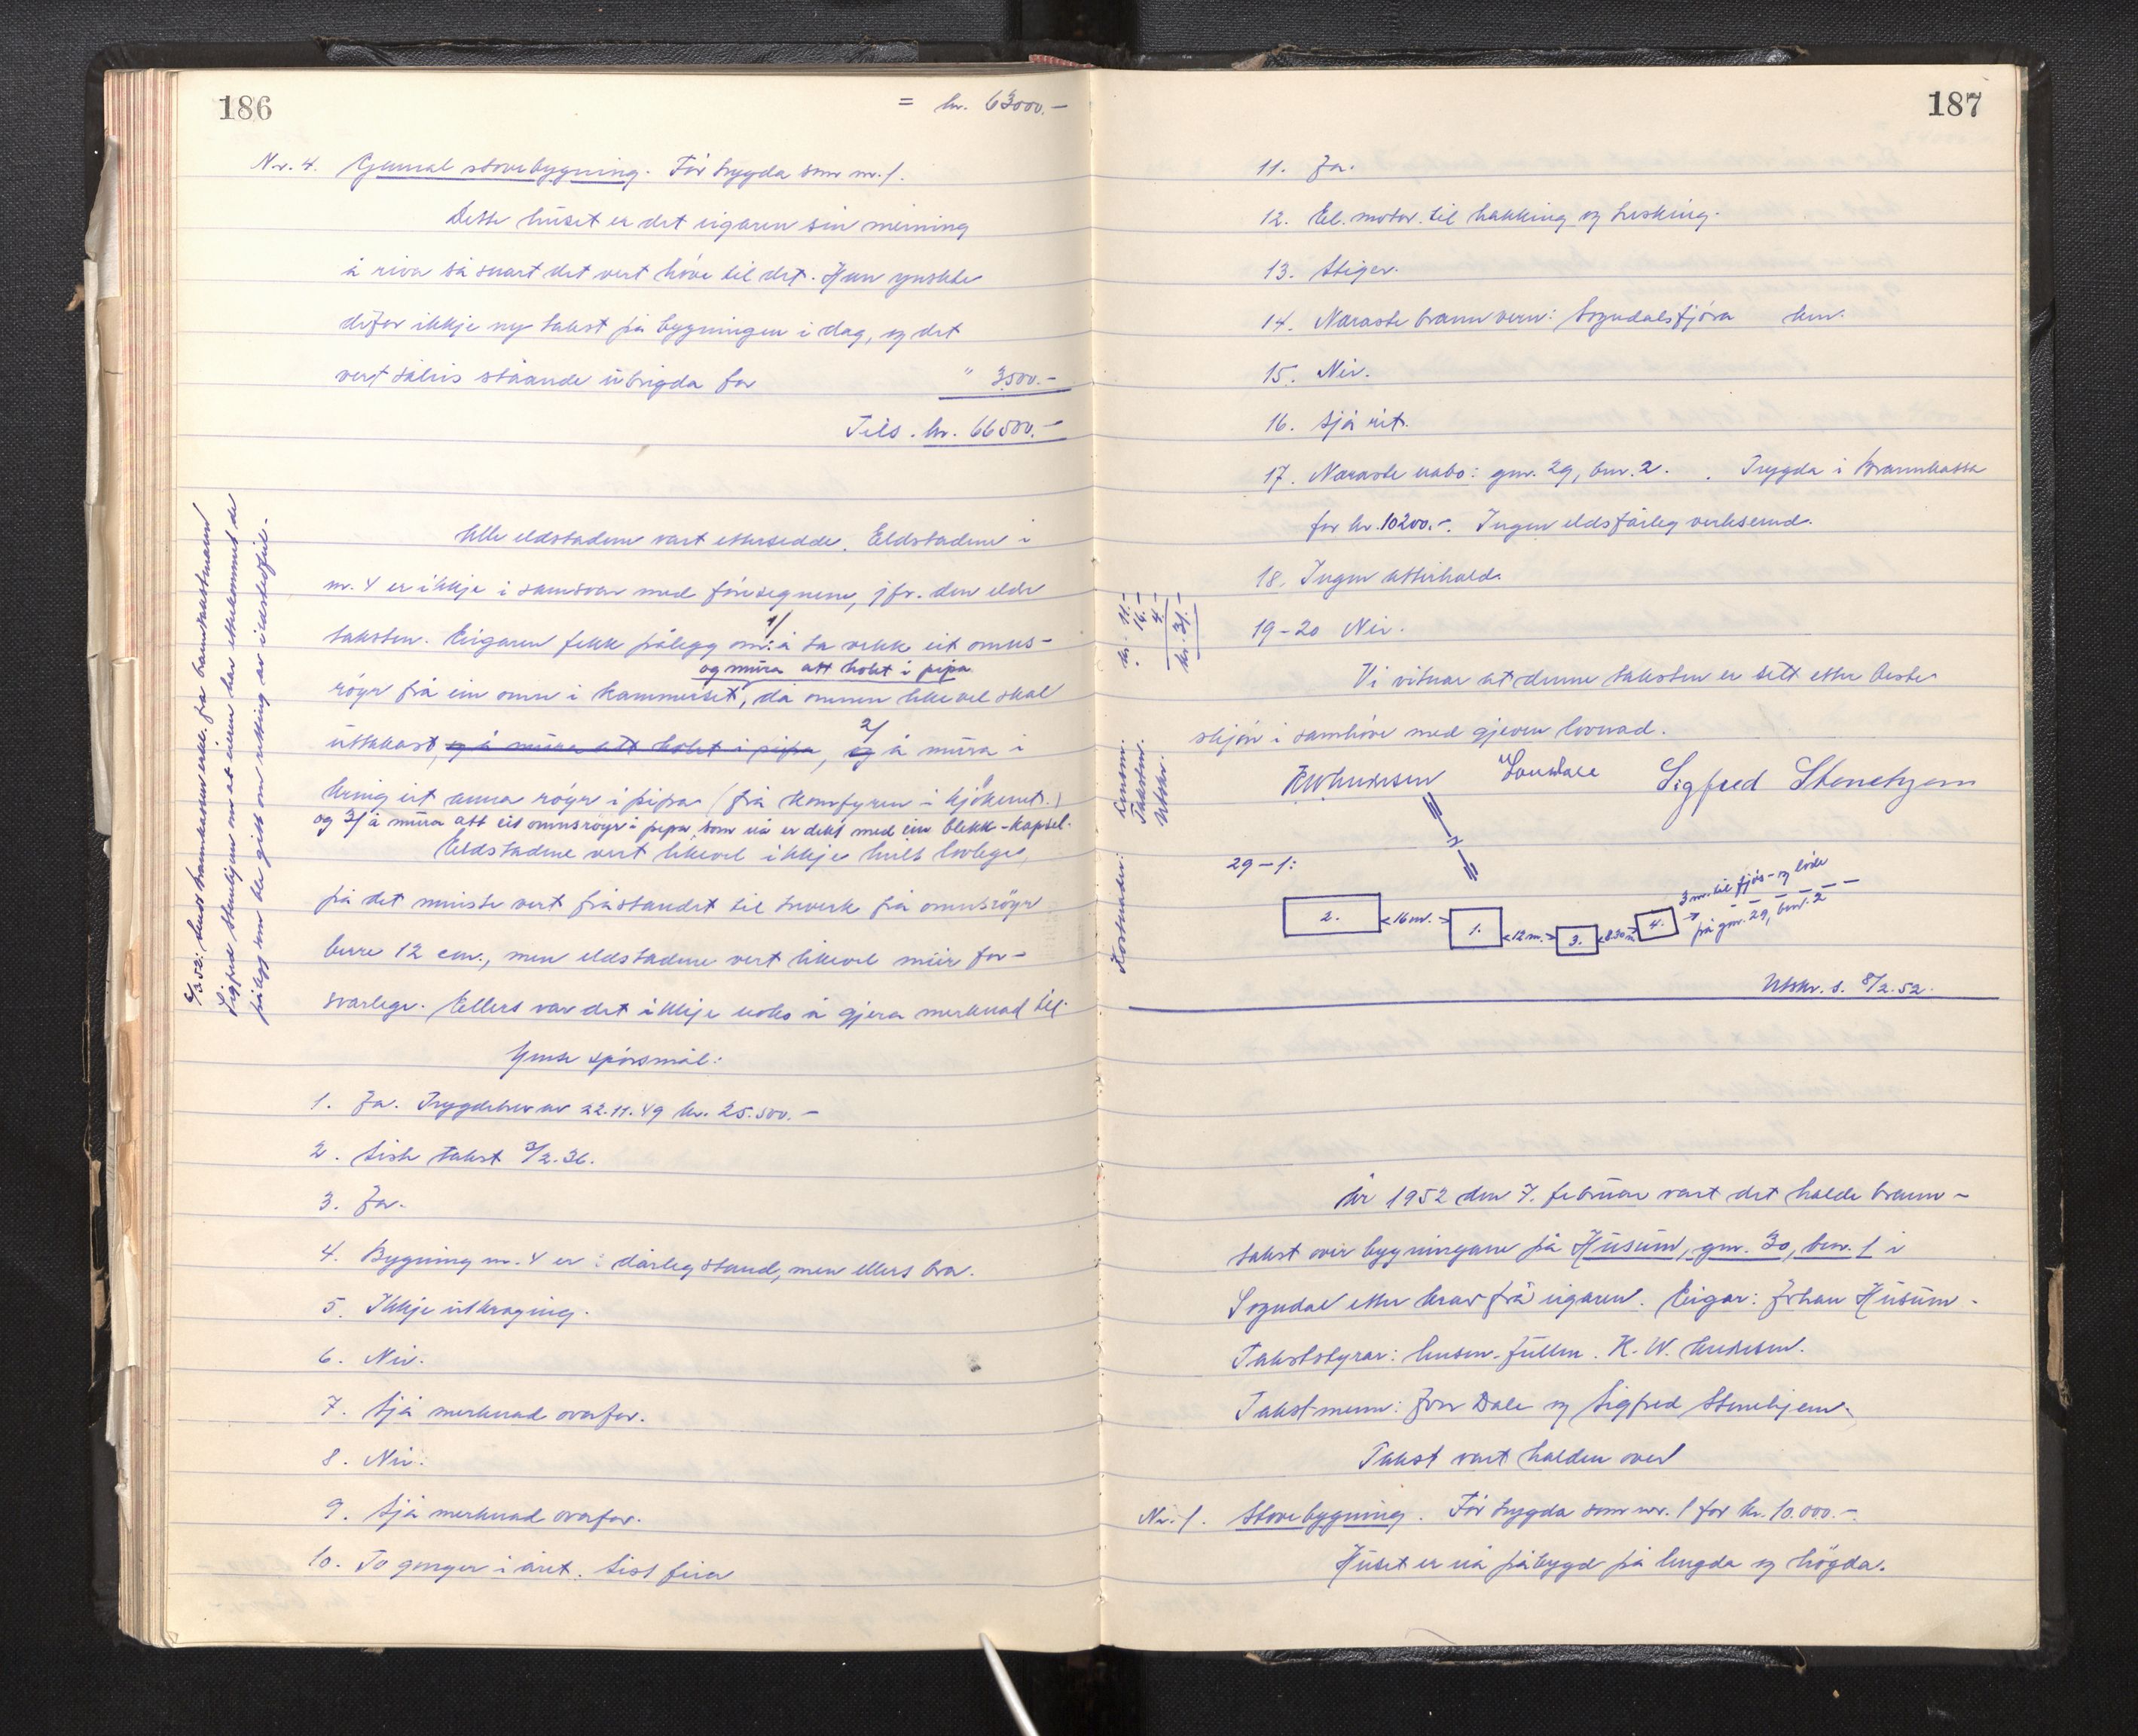 186
= kr. 63000.-
Nr. 4. Gamal stovebygning. Før trygda som nr. 1.
Dette huset er det eigaren sin meining
å riva så snart det vert høve til det. Han ynskte
difor ikkje ny takst på bygningen i dag, og det
vert såleis ståande ubrigda for " 3500.-
Tils. kr. 66500.-
Alle eldstadene vart ettersedde. Eldstadene i
nr. 4 er ikkje i samsvar med føresegnene, jfr. den eldre
taksten. Eigaren fekk pålegg om: 1/ å ta vekk eit omns-
røyr frå ein omn i kammerset, og mura att holet i pipa, då omnen likevel skal
uttakast, og å mura att holet i pipa, og 2/ å mura i
kring eit anna røyr i pipa (frå komfyren i kjøkenet.)
og 3/ å mura att eit omnsrøyr i pipa som nå er dekt med ein blekk-kapsel.
Eldstadene vert likevel ikkje heilt lovlege,
på det minste vert fråstandet til treverk frå omnsrøyr
berre 12 cm., men eldstadene vert likevel meir for-
svarlege. Ellers var det ikkje noko å gjera merknad til.
Ymse spörsmål:
1. Ja. Trygdebrev av 22.11.49 kr. 25.500.-
2. Siste takst 3/2.36.
3. Ja.
4. Bygning nr. 4 er i dårleg stand, men ellers bra.
5. Ikkje utkraging.
6. Nei.
7. Sjå merknad ovafor.
8. Nei.
9. Sjå merknad ovafor.
10. To gonger i året. Sist feia
6/3.52: Sendt brannkassen erkl. fra branntakstmann
Sigfred Stenehjem om at eieren har etterkommet de
pålegg som ble gitt om retting av ildstedfeil.
187
11. Ja.
12. El. motor til hakking og tresking.
13. Stiger.
14. Næraste brannvern: Sogndalsfjøra km.
15. Nei.
16. Sjå rit.
17. Næraste nabo: gnr. 29, bnr. 2. Trygda i Brannkassa
for kr. 10200.-. Ingen eldsfårleg verksemd.
18. Ingen atterhald.
19-20 Nei.
Vi vitnar at denne taksten er sett etter beste
skjøn i samhöve med gjeven lovnad.
K W Andersen Jon Dale Sigfred Stenehjem
Kostnader: Lensm. kr. 11.-
Takstm. " 16.-
Utskr. 4.-
kr. 31.-
29-1:
N
2. <16m.> 1. <12m.> 3. <8.30m> 4.
3 m. til fjøs- og løde
på gnr. 29, bnr. 2
Utskr. s. 8/2.52.
År 1952 den 7. februar vart det halde brann-
takst over bygningane på Husum, gnr. 30, bnr. 1 i
Sogndal etter krav frå eigaren. Eigar: Johan Husum.
Takststyrar: lensm.fullm. K. W. Andersen.
Takstmenn: Jon Dale og Sigfred Stenehjem.
Takst vart halden over
Nr. 1. Stovebygning. Før trygda som nr. 1 for kr. 10.000.-.
Huset er nå påbygd på lengda og høgda.